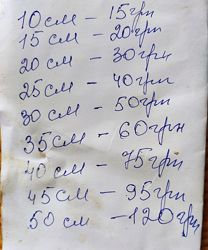 10см – 15грн
15см – 20грн
20см – 30грн
25см – 40грн
30см – 50грн
35см – 60грн
40см – 75грн
45см – 95грн
50см – 120грн